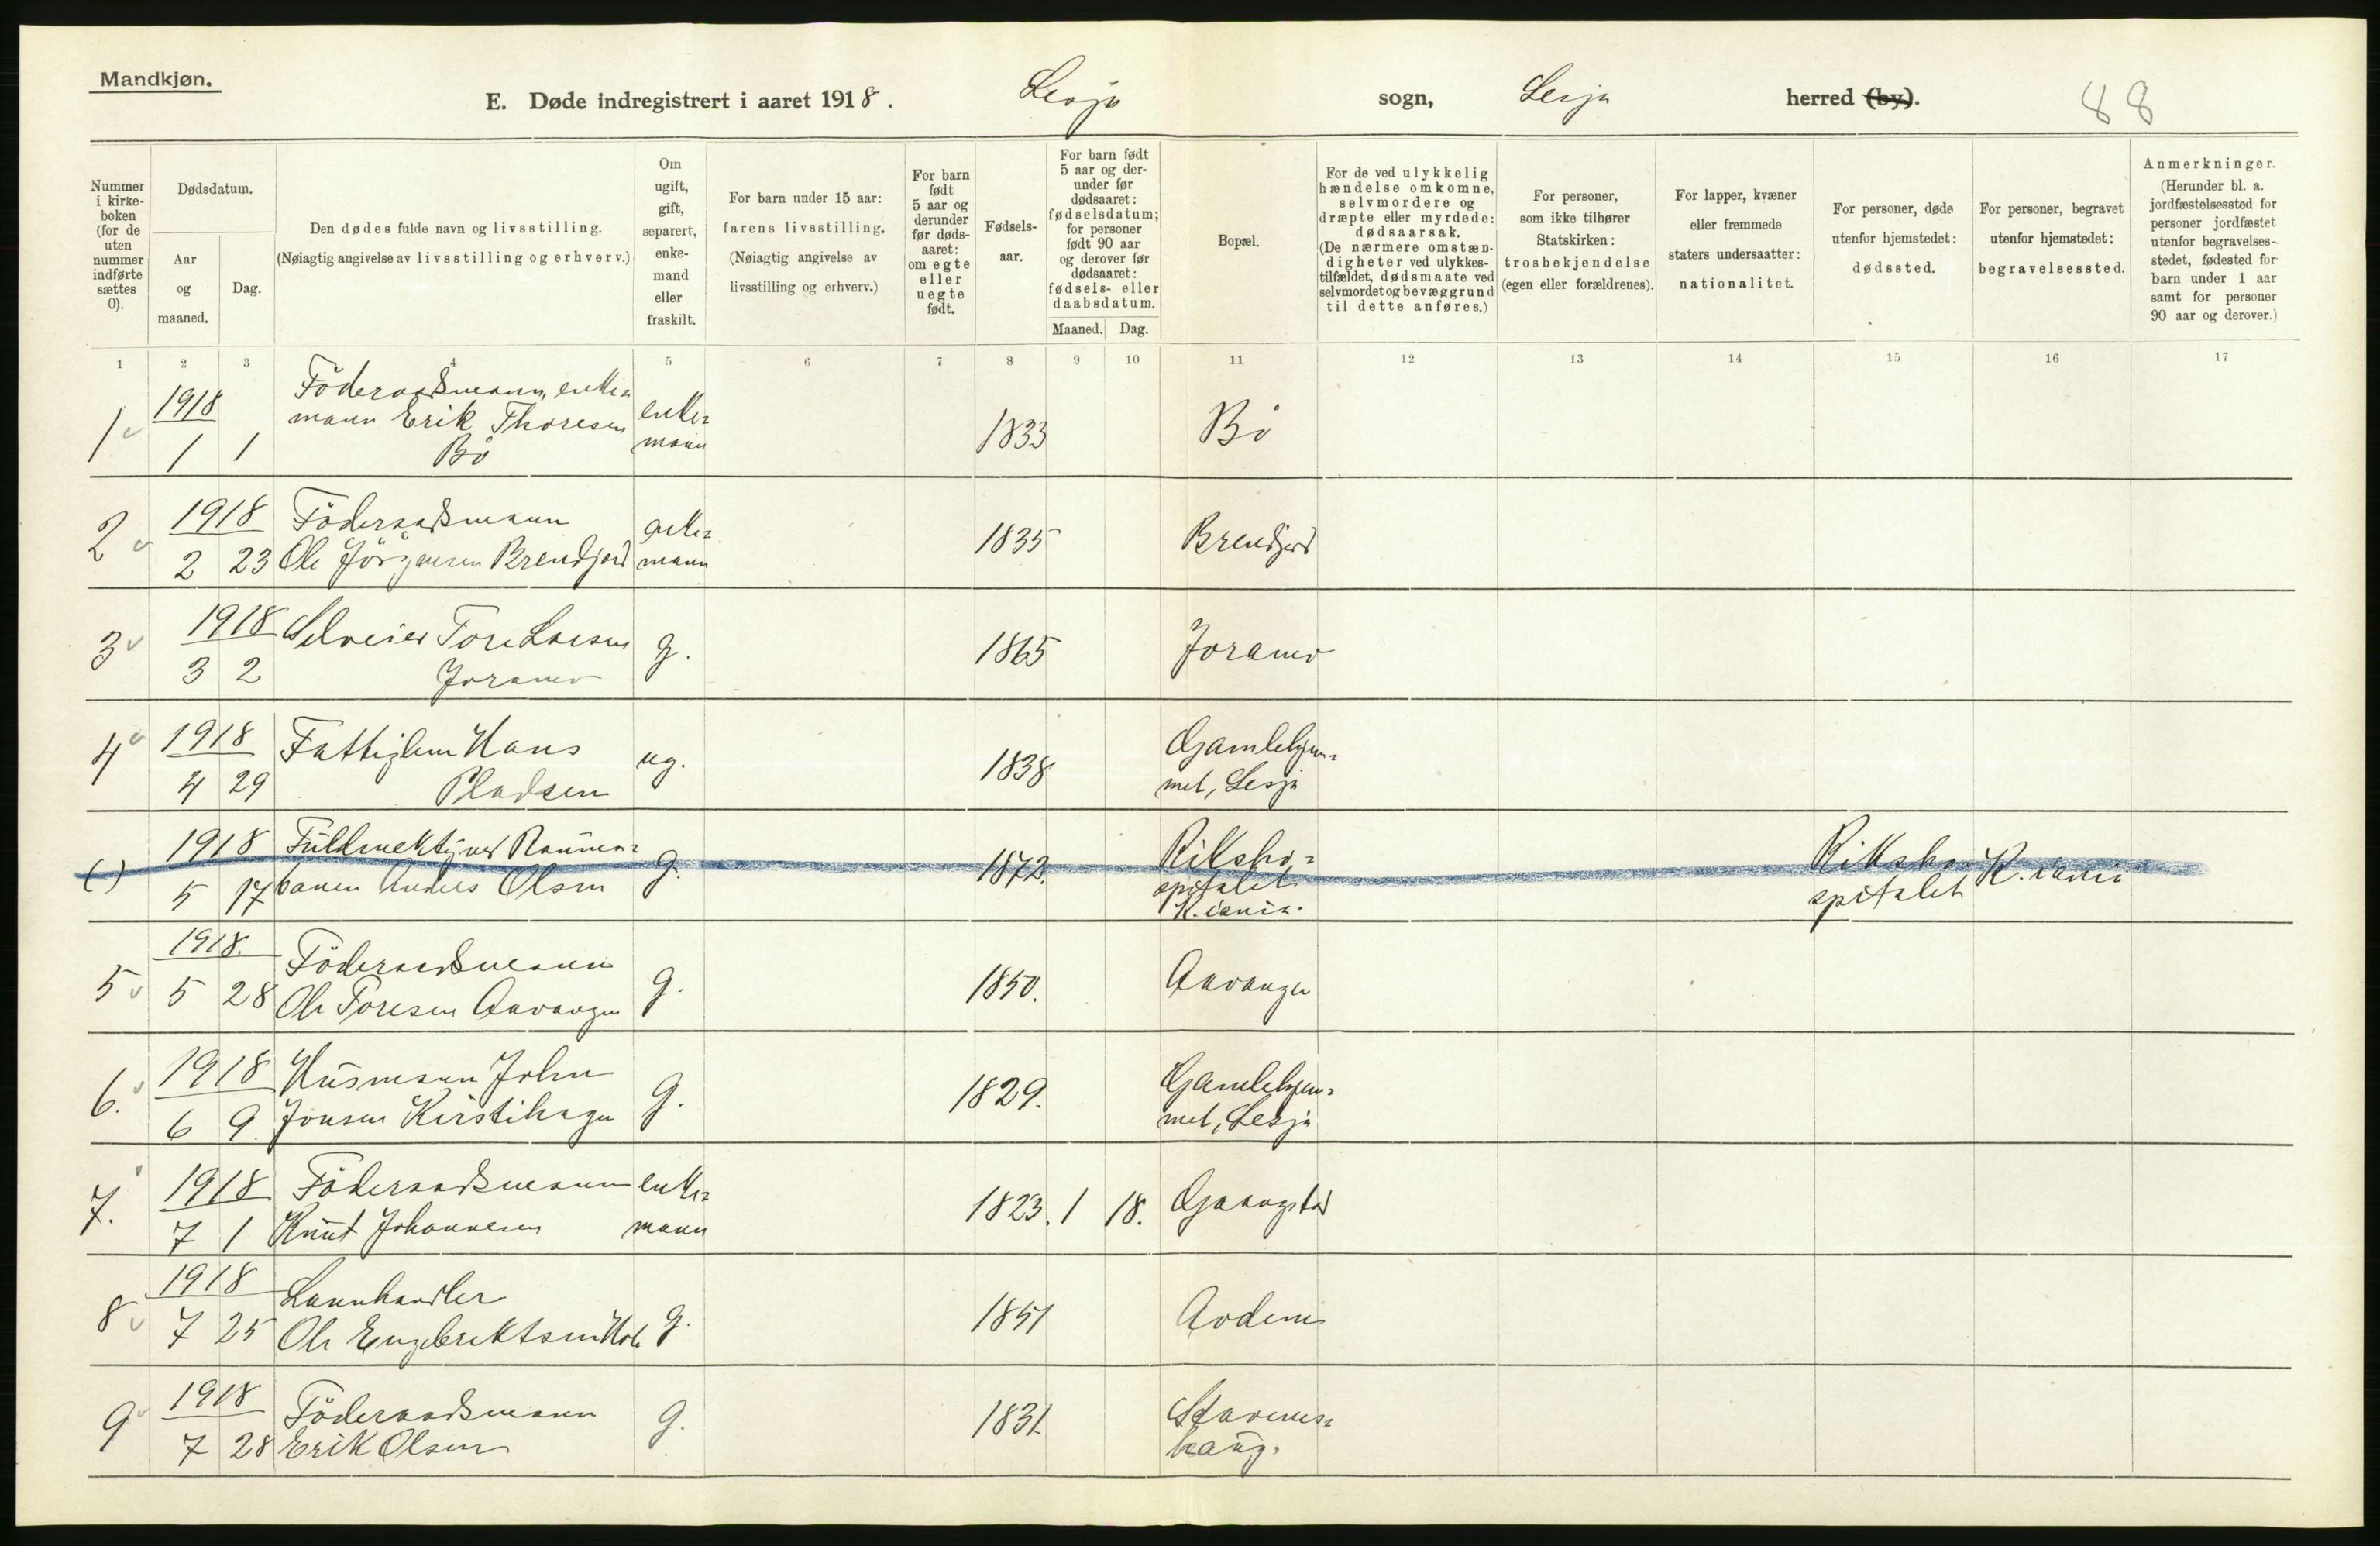 Mandkjøn.
E. Døde indregistrert i aaret 1918. Lesja sogn, Lesja herred (by). 88
Nummer i kirke- boken (for de uten nummer indførte sættes 0).
Dødsdatum.
Aar og maaned.
Dag.
Den dødes fulde navn og livsstilling.
(Nøiagtig angivelse av livsstilling og erhverv.)
Om ugift, gift, separert, enke- mand eller fraskilt.
For barn under 15 aar:
farens livsstilling.
(Nøiagtig angivelse av livsstilling og erhverv.)
For barn født 5 aar og derunder før døds- aaret: om egte eller uegte født.
Fødsels- aar.
For barn født 5 aar og der- under før dødsaaret: fødselsdatum; for personer født 90 aar og derover før dødsaaret: fødsels- eller daabsdatum.
Maaned. Dag.
Bopæl.
For de ved ulykkelig hændelse omkomne, selvmordere og dræpte eller myrdede: dødsaarsak.
(De nærmere omstæn- digheter ved ulykkes- tilfældet, dødsmaate ved selvmordet og bevæggrund til dette anføres.)
For personer, som ikke tilhører Statskirken: trosbekjendelse (egen eller forældrenes).
For lapper, kvæner eller fremmede staters undersaatter: nationalitet.
For personer, døde utenfor hjemstedet: dødssted.
For personer, begravet utenfor hjemstedet: begravelsessted.
Anmerkninger.
(Herunder bl. a. jordfæstelsessted for personer jordfæstet utenfor begravelses- stedet, fødested for barn under 1 aar samt for personer 90 aar og derover.)
1 2 3 4 5 6 7 8 9 10 11 12 13 14 15 16 17
1918 Föderaadsmann, enke=
1 mann Erik Thoresen enke= 1833 Bö
1 1 Bö mann
1918 Föderaadsmann enke=
2 1835 Brendjord
2 23 Ole Jörgensen Brendjord mann
1918 Selveier Tore Larsen
3 g. 1865 Joramo
3 2 Joramo
4 1918 Fattiglem Hans ug. 1838 Gamlehjem=
4 29 Pladsen met, Lesja
1918 Fuldmektig ved Rauma= Riksho= Riksho=
() g. 1872. spitalet K.iania
5 17 banen Anders Olsen K.iania. spitalet
1918. Föderaadsmann
5 5 28 Ole Toresen Aavangen g. 1850. Aavangen
1918 Husmann John Gamlehjem=
6. g. 1829.
6 9. Jonsen Kirstihagen met, Lesja
1918 Föderaadsmann enke=
7. 1823. 1 18. Gaangstad
7 1 Knut Johannesen mann
1918 Lannhandler
8 7 25 Ole Engebriktsen Hole g. 1851 Avdem
1918 Föderaadsmann Stavems=
9 g. 1831.
7 28 Erik Olsen haug.